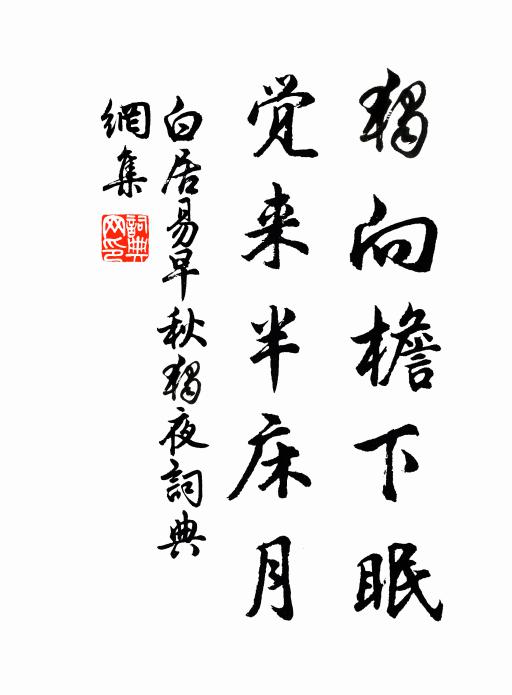 獨向檐下眠
觉来半床月
白居易早秋獨夜詞典
網集
詞典网印